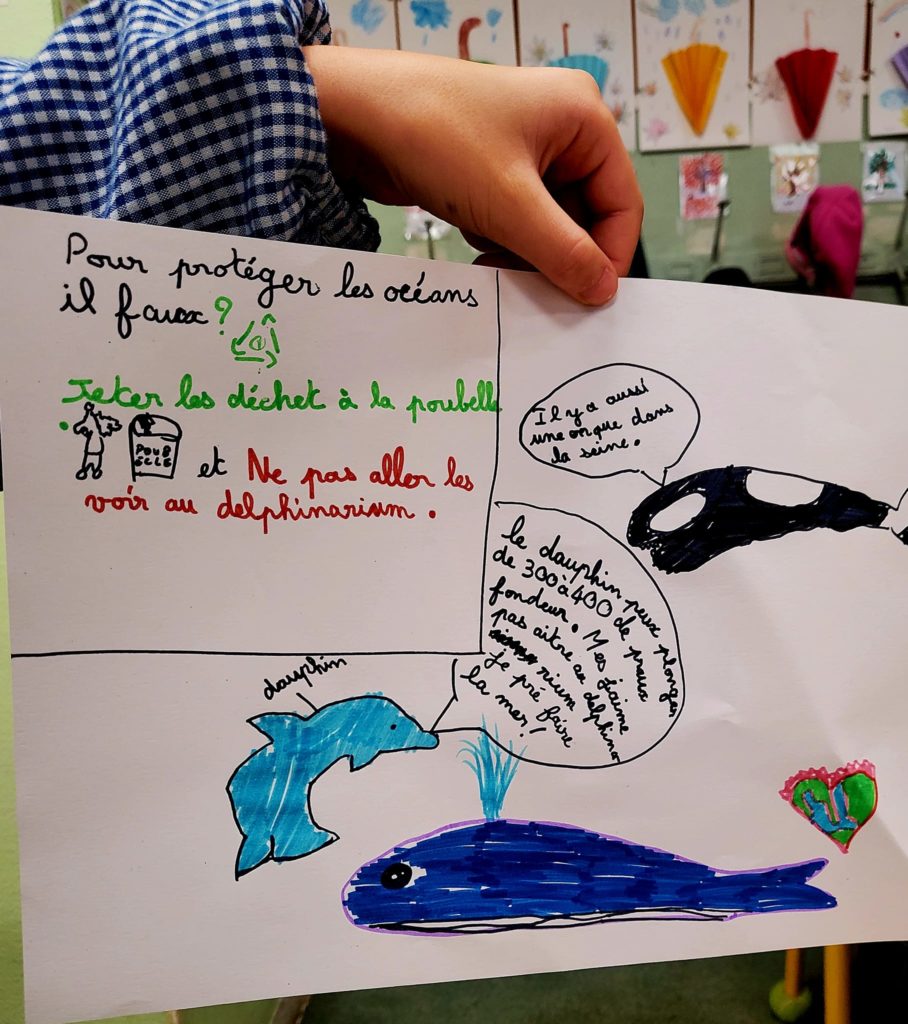 Pour protéger les océans
il faux?
Jeter les déchet à la poubelle
.
POUB
ELLE
et Ne pas aller les
voir au delphinarium.
Il y a aussi
une orque dans
la seine.
le dauphin peux plonger
de 300 à 400 de praux
fondeur. Mes j'aime
pas aitre au delphina
rium
Je pré faire
la mer!
dauphin